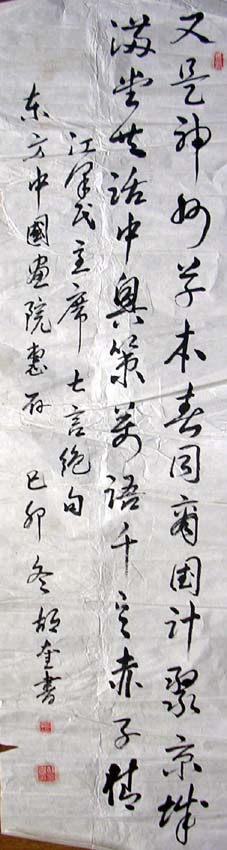 又是神州草木春同商国计聚京城
满堂共话中兴策万语千言赤子情
江泽民主席七言绝句
东方中國画院惠存 己卯冬 胡奎書